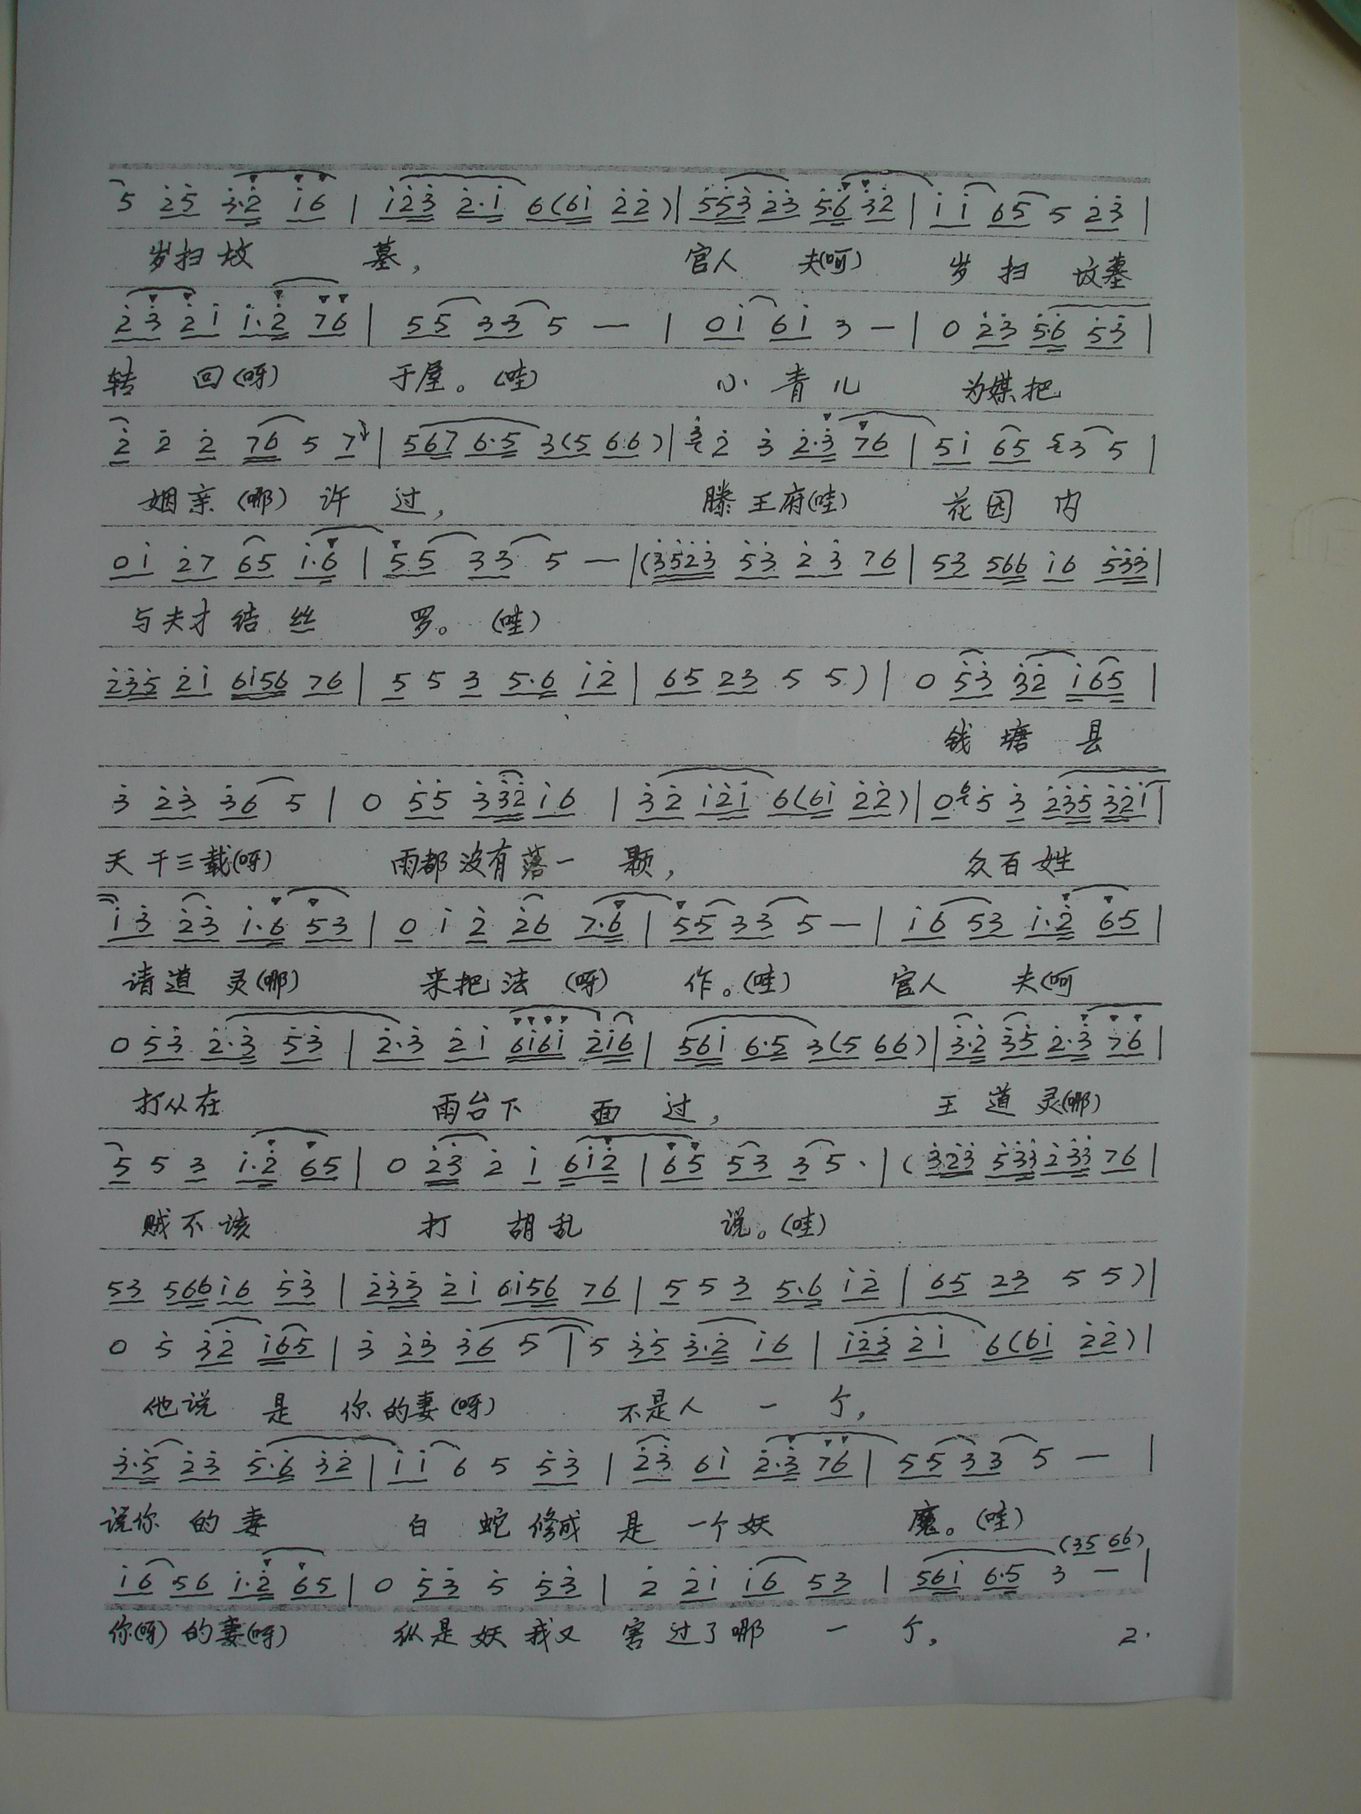 5 2̇5̇ 3̇·2̇ i6 | i2̇3̇ 2̇·i 6(6i 2̇2̇)| 5̇5̇3̇ 2̇3̇ 5̇·6̇ 3̇2̇ | ii 65 5 2̇3̇ |
岁扫坟 墓， 官人 夫(呵) 岁扫 坟墓
2̇3̇ 2̇i i·2̇ 76 | 55 33 5 — | 0i 6i 3 — | 0 2̇3̇ 5̇·6̇ 5̇3̇ |
转 回(呀) 于屋。(哇) 小青儿 为媒把
2̇ 2̇ 2̇ 76 5 7 | 567 6·5 3(5 66)| 2̇ 3̇ 2̇·3̇ 76 | 5i 65 3 5 |
姻亲(哪)许 过， 滕王府(哇) 花园内
0i 2̇7 65 i·6 | 55 33 5 — |(3̇5̇2̇3̇ 5̇3̇ 2̇ 3̇ 76 | 53 566 i6 5̇3̇3̇ |
与夫才结丝 罗。(哇)
2̇3̇5̇ 2̇i 6i56 76 | 5 5 3 5·6 i2̇ | 65 23 5 5)| 0 5̇3̇ 3̇2̇ i65 |
钱塘县
3̇ 2̇3̇ 3̇6 5 | 0 5̇5̇ 3̇3̇2̇ i6 | 3̇2̇ i2̇i 6(6i 2̇2̇)| 0 5̇ 3̇ 2̇3̇5̇ 3̇2̇i |
天干三载(呀) 雨都没有落一 颗， 众百姓
i3̇ 2̇3̇ i·6 5̇3 | 0 i 2̇ 2̇6 7·6 | 55 33 5 — | i6 53 i·2̇ 65 |
请道灵(哪) 来把法(呀) 作。(哇) 官人 夫(呵
0 5̇3̇ 2̇·3̇ 5̇3̇ | 2̇·3̇ 2̇i 6i6i 2̇i6 | 56i 6·5 3(5 66)| 3̇·2̇ 3̇5̇ 2̇·3̇ 76 |
打从在 雨台下 面 过， 王道灵(哪)
5 5 3 i·2̇ 65 | 0 2̇3̇ 2̇ i 6i2̇ | 65 53 3 5 · |(3̇2̇3̇ 5̇3̇3̇ 2̇3̇3̇ 76 |
贼不该 打 胡乱 说。(哇)
53 566 i6 5̇3̇ | 2̇3̇3̇ 2̇i 6i56 76 | 5 5 3 5·6 i2̇ | 65 23 5 5)|
0 5̇ 3̇2̇ i65 | 3̇ 2̇3̇ 3̇6 5 | 5 3̇5̇ 3̇·2̇ i6 | i2̇3̇ 2̇i 6(6i 2̇2̇)|
他说是 你的妻(呀) 不是人 一 个，
3̇·5̇ 2̇3̇ 5̇·6̇ 3̇2̇ | ii 6 5 5̇3̇ | 2̇3̇ 6i 2̇·3̇ 76 | 55 33 5 — |
说你的妻 白 蛇修成 是 一个妖 魔。(哇)
(35 66)
i6 56 i·2̇ 65 | 0 5̇3̇ 5̇ 5̇3̇ | 2̇ 2̇i i6 53 | 56i 6·5 3 — |
你(呀)的妻(呀) 纵是妖我又 害过了哪 一 个， 2.